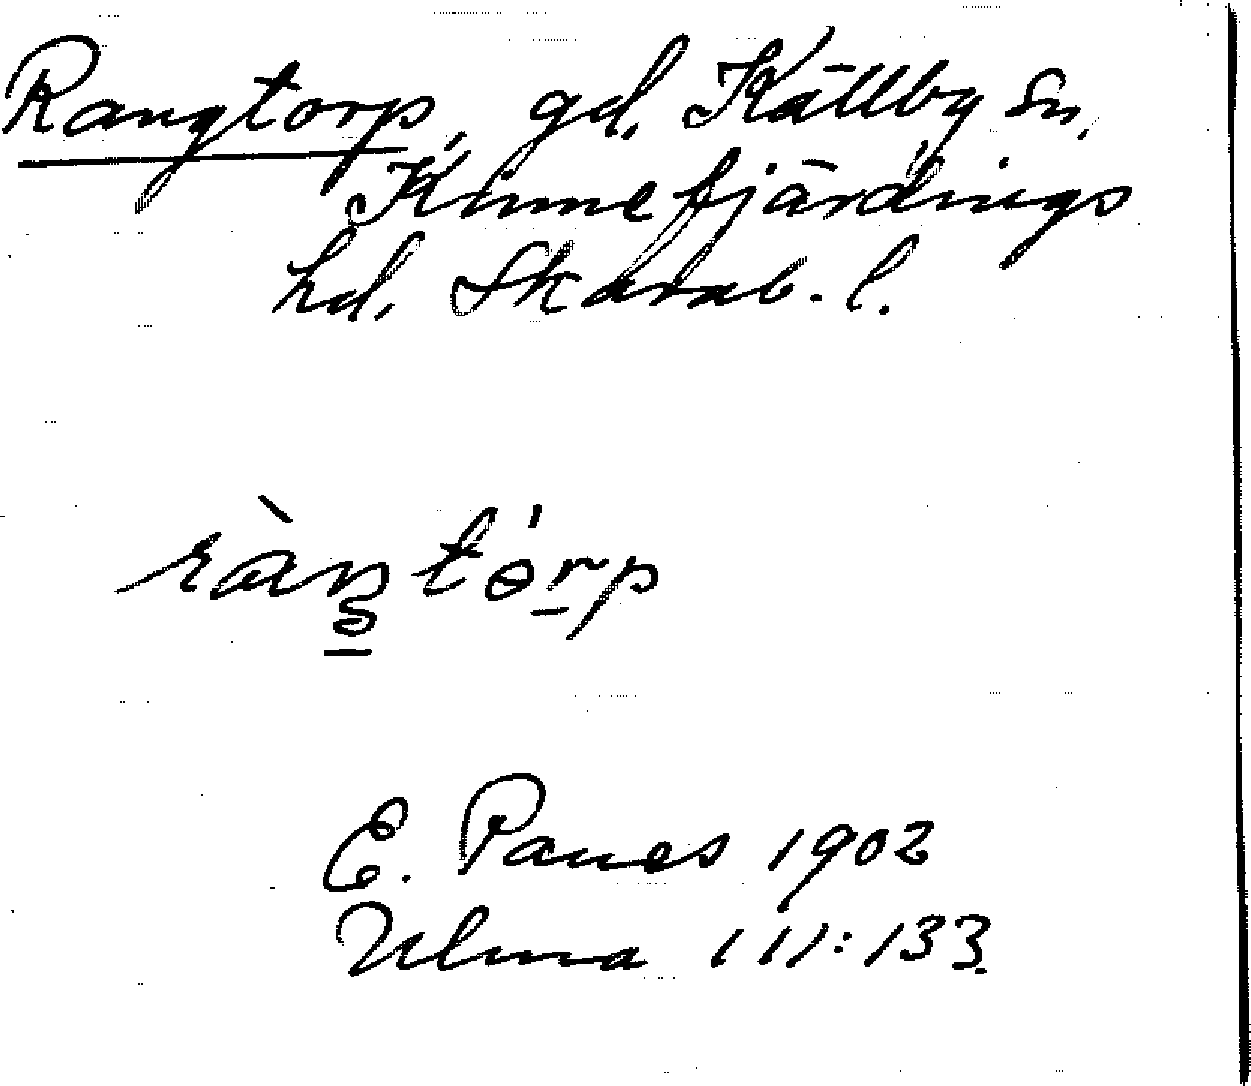 Rangtorp, gd. Källby sn,
Kinnefjärdings
hd. Skarab. l.
E. Panes 1902
Ulma 111:133.